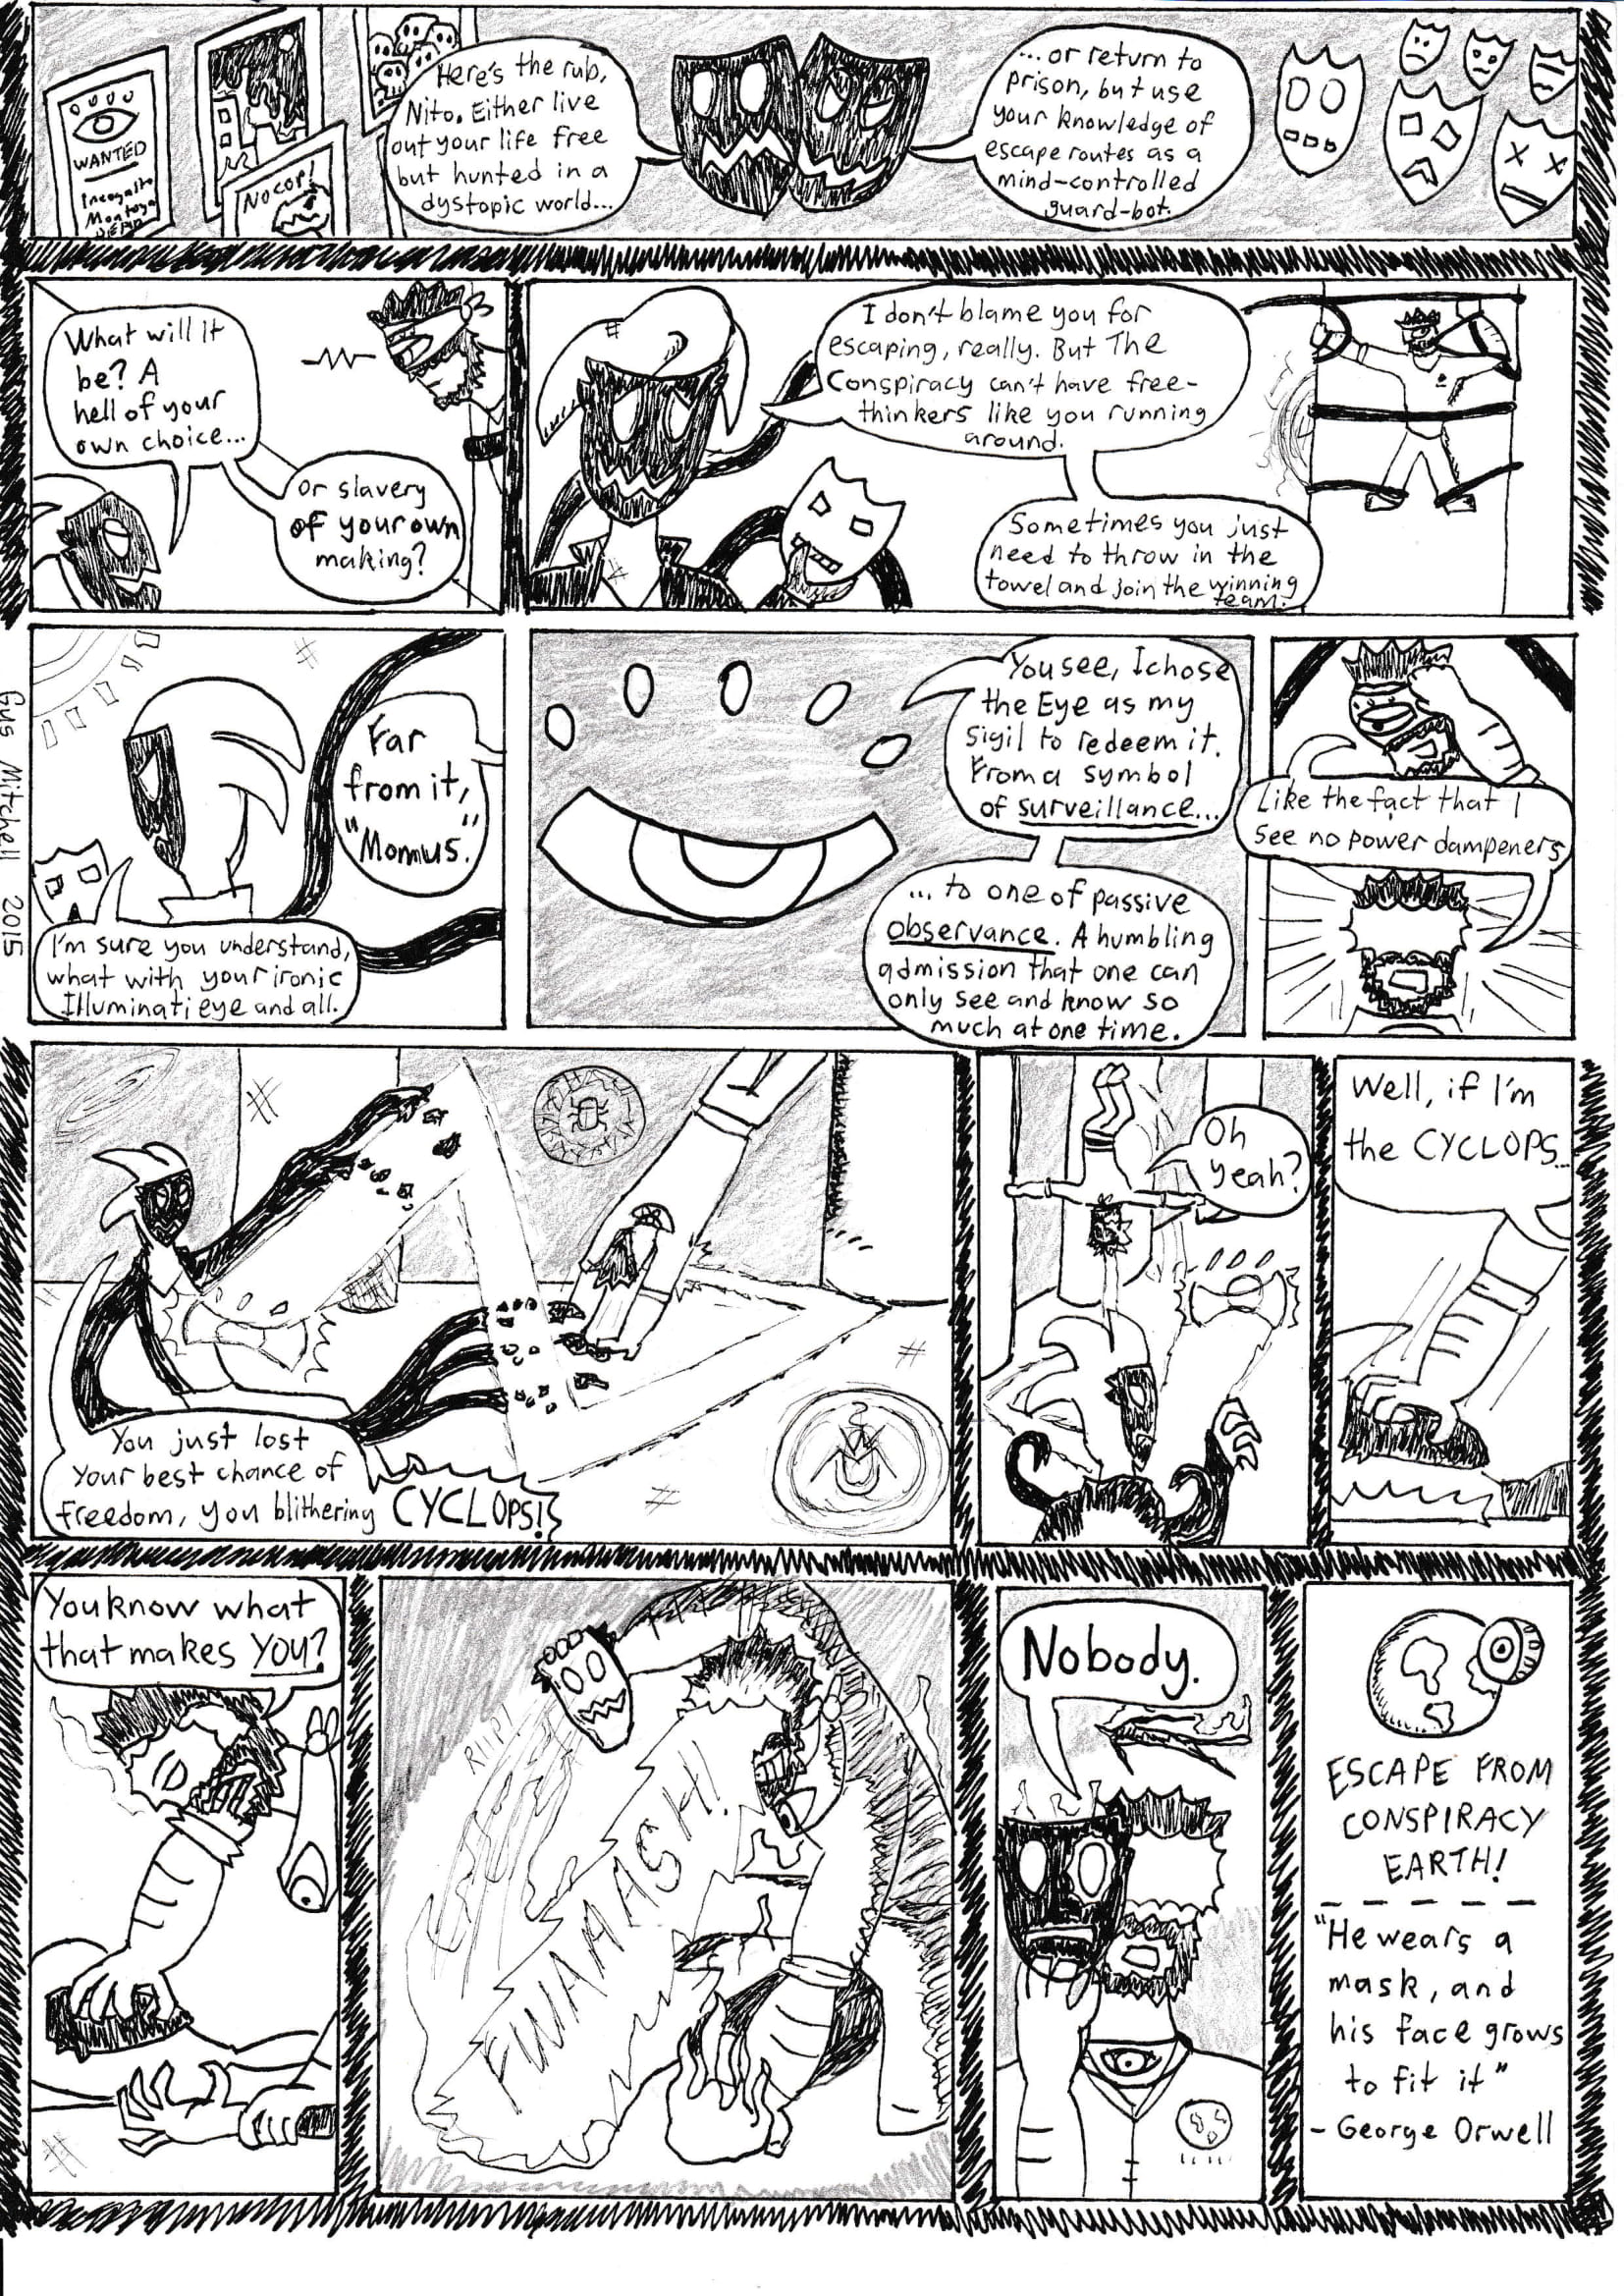 WANTED
Incognito
Montoya
NO COP!
Here's the rub,
Nito. Either live
out your life free
but hunted in a
dystopic world...
...or return to
prison, but use
your knowledge of
escape routes as a
mind-controlled
guard-bot.
What will it
be? A
hell of your
own choice...
Or slavery
of your own
making?
I don't blame you for
escaping, really. But The
Conspiracy can't have free-
thinkers like you running
around.
Sometimes you just
need to throw in the
towel and join the winning
team.
Far
from it,
"Momus."
I'm sure you understand,
what with your ironic
Illuminati eye and all.
You see, I chose
the Eye as my
Sigil to redeem it.
From a symbol
of surveillance...
... to one of passive
observance. A humbling
admission that one can
only see and know so
much at one time.
Like the fact that I
see no power dampeners
You just lost
your best chance of
freedom, you blithering CYCLOPS!
Oh
yeah?
Well, if I'm
the CYCLOPS...
You know what
that makes YOU?
RIIP!
FWAAASH!
Nobody.
ESCAPE FROM
CONSPIRACY
EARTH!
"He wears a
mask, and
his face grows
to fit it"
- George Orwell
Gus Mitchell 2015